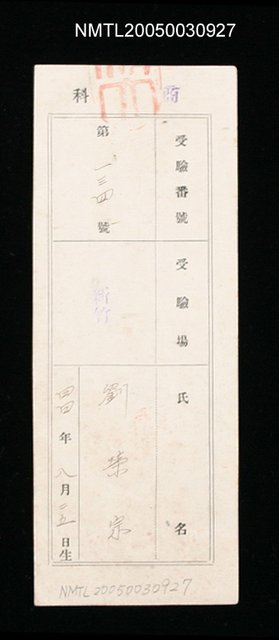 NMTL20050030927
商科
受驗番號
第一三四號
受驗場
新竹
氏名
劉榮宗
年八月一五日生
NMTL20050030927